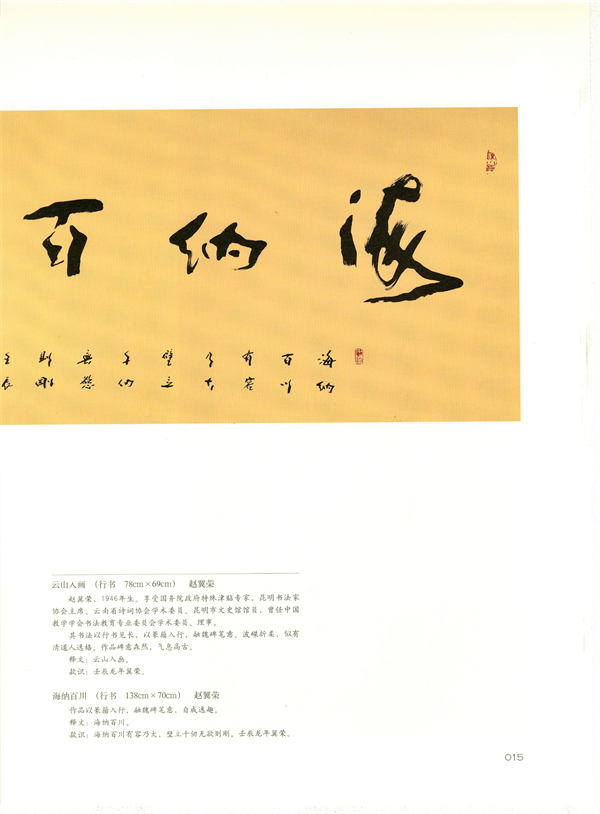 海纳百
海纳
百川
有容
乃大
壁立
千仞
無慾
則剛
壬辰
云山入画 （行书 78cm×69cm） 赵翼荣
赵翼荣，1946年生。享受国务院政府特殊津贴专家，昆明书法家
协会主席、云南省诗词协会学术委员、昆明市文史馆馆员，曾任中国
教学学会书法教育专业委员会学术委员、理事。
其书法以行书见长，以篆籀入行，融魏碑笔意。波磔折柔，似有
清道人遗格。作品碑意森然，气息高古。
释文：云山入画。
款识：壬辰龙年翼荣。
海纳百川 （行书 138cm×70cm） 赵翼荣
作品以篆籀入行，融魏碑笔意，自成逸趣。
释文：海纳百川。
款识：海纳百川有容乃大，壁立千仞无欲则刚。壬辰龙年翼荣。
015